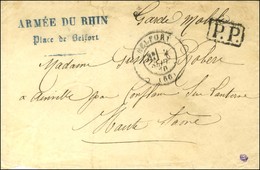 Garde Mobile
ARMÉE DU RHIN
Place de Belfort
BELFORT
P.P.
(66)
Madame Gustave Robert
à par Conflans sur Lanterne
Haute Saône